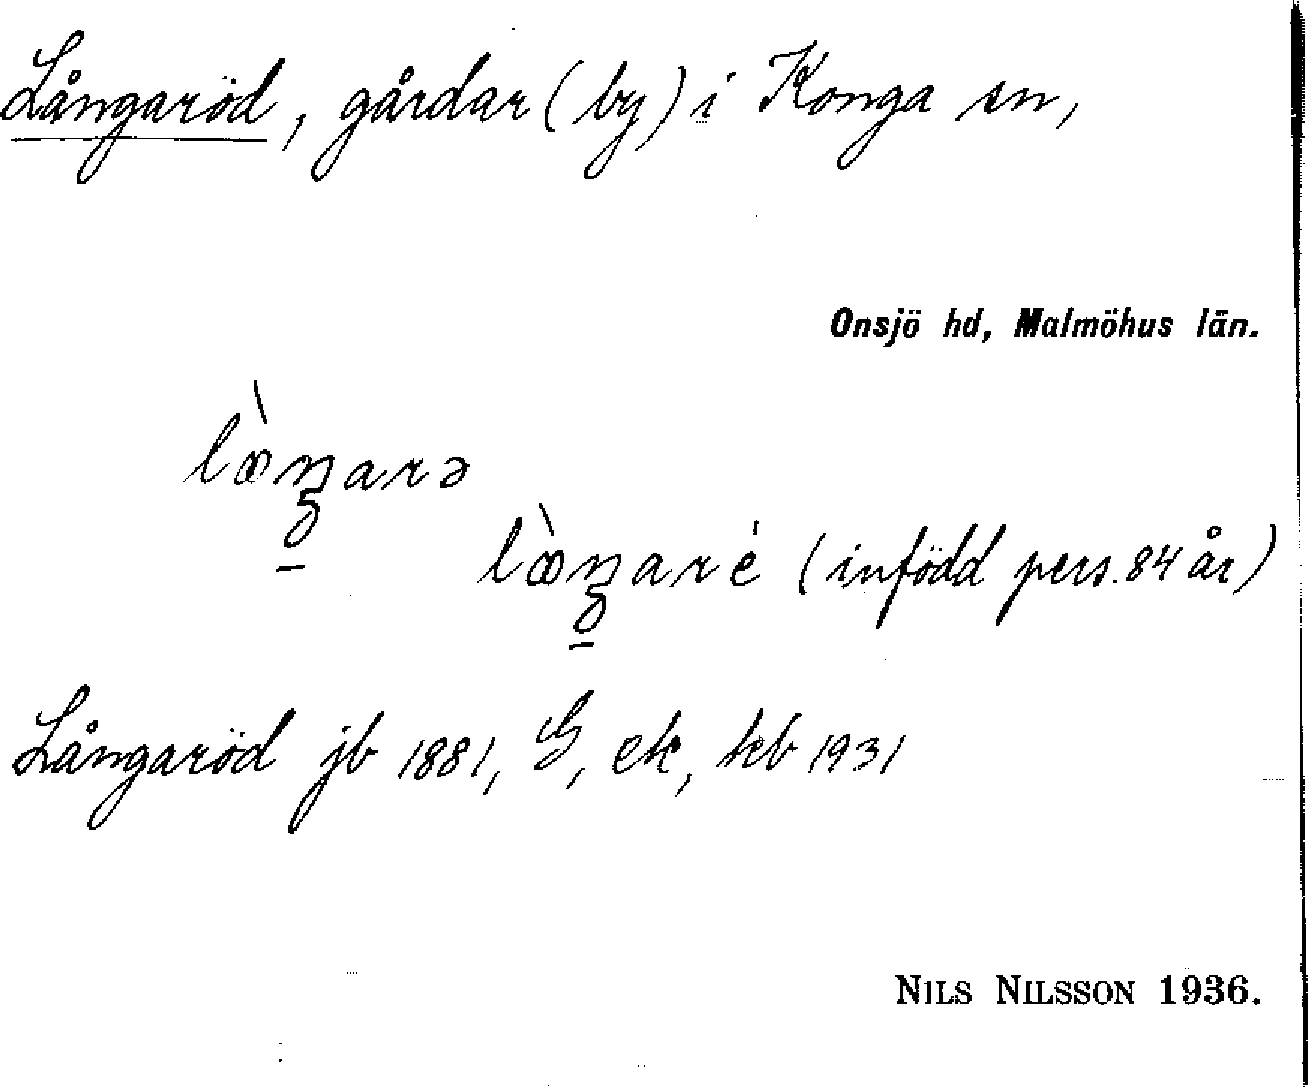 Långaröd, gårdar (by) i Konga sn,
Onsjö hd, Malmöhus län.
(infödd pers. 84 år)
Långaröd jb 1881, G, ek, kb 1931
NILS NILSSON 1936.